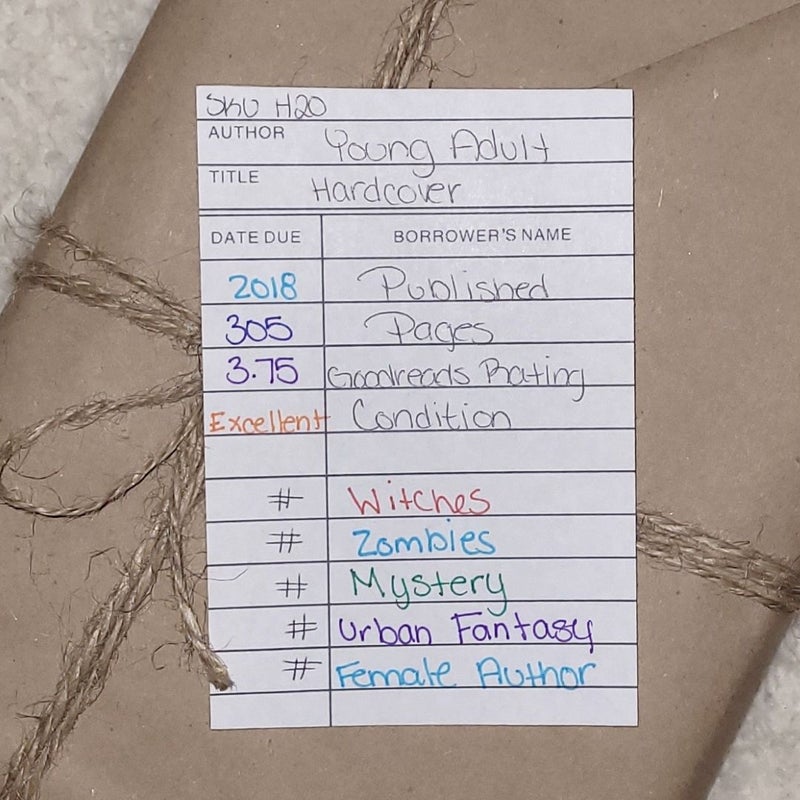 SKU H20
AUTHOR Young Adult
TITLE Hardcover
DATE DUE BORROWER'S NAME
2018 Published
305 Pages
3.75 Goodreads Rating
Excellent Condition
# Witches
# Zombies
# Mystery
# Urban Fantasy
# Female Author